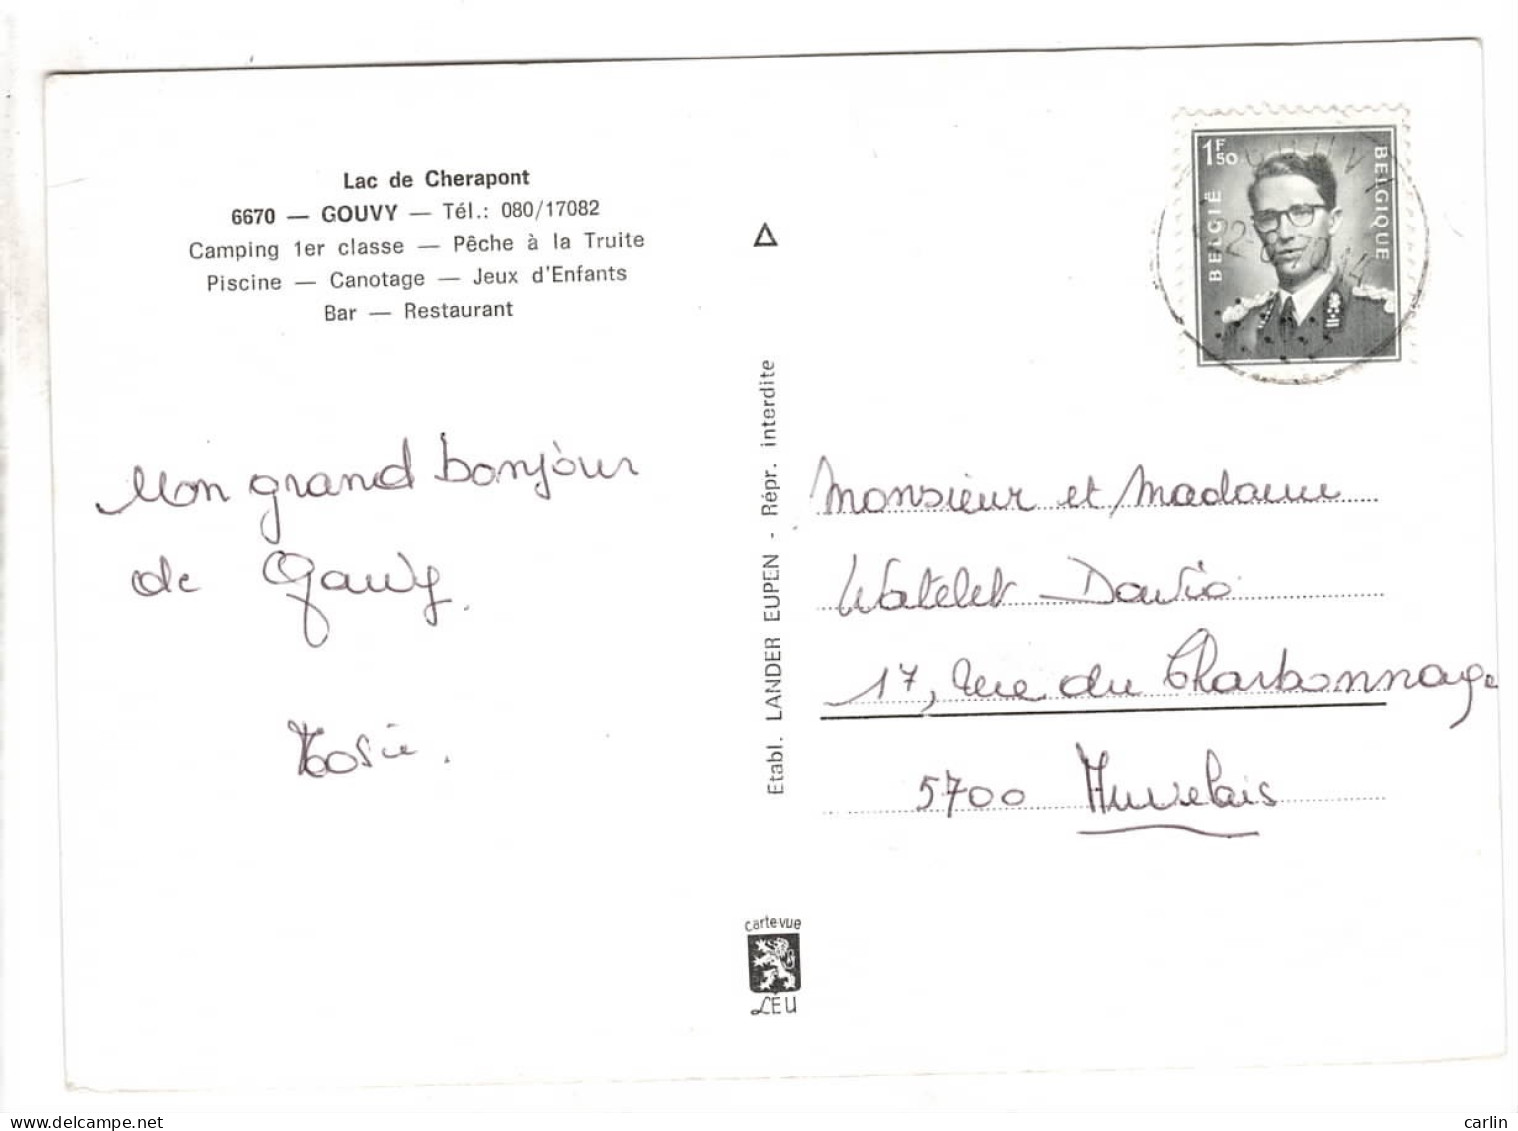 Lac de Cherapont
6670 — GOUVY — Tél.: 080/17082
Camping 1er classe — Pêche à la Truite
Piscine — Canotage — Jeux d'Enfants
Bar — Restaurant
Mon grand bonjour
de Gouvy.
1F50
BELGIË
BELGIQUE
Etabl. LANDER EUPEN - Répr. interdite
Monsieur et Madame
Watelet
17, rue du Charbonnage
5700 Auvelais
carte vue
LEU
www.delcampe.net
carlin